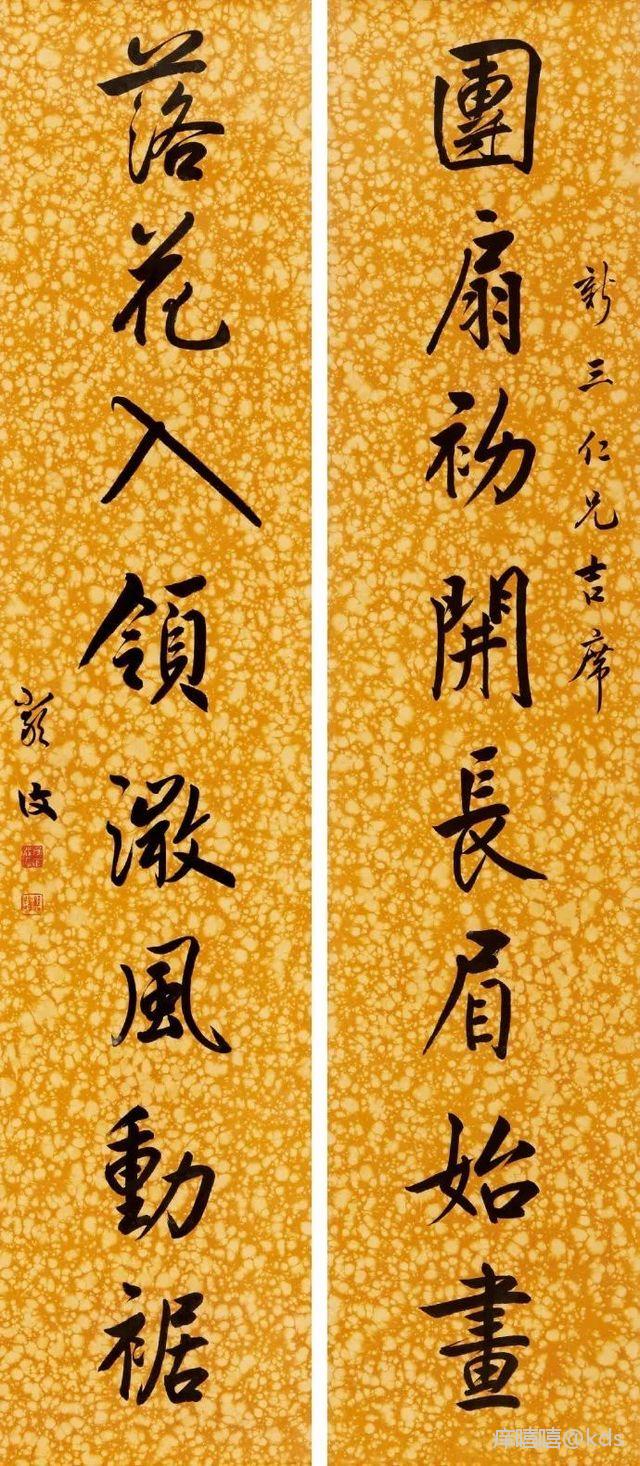 團扇初開長眉始畫
新三仁兄吉席
落花入領微風動裾
嚴復
痒嘻嘻@kds